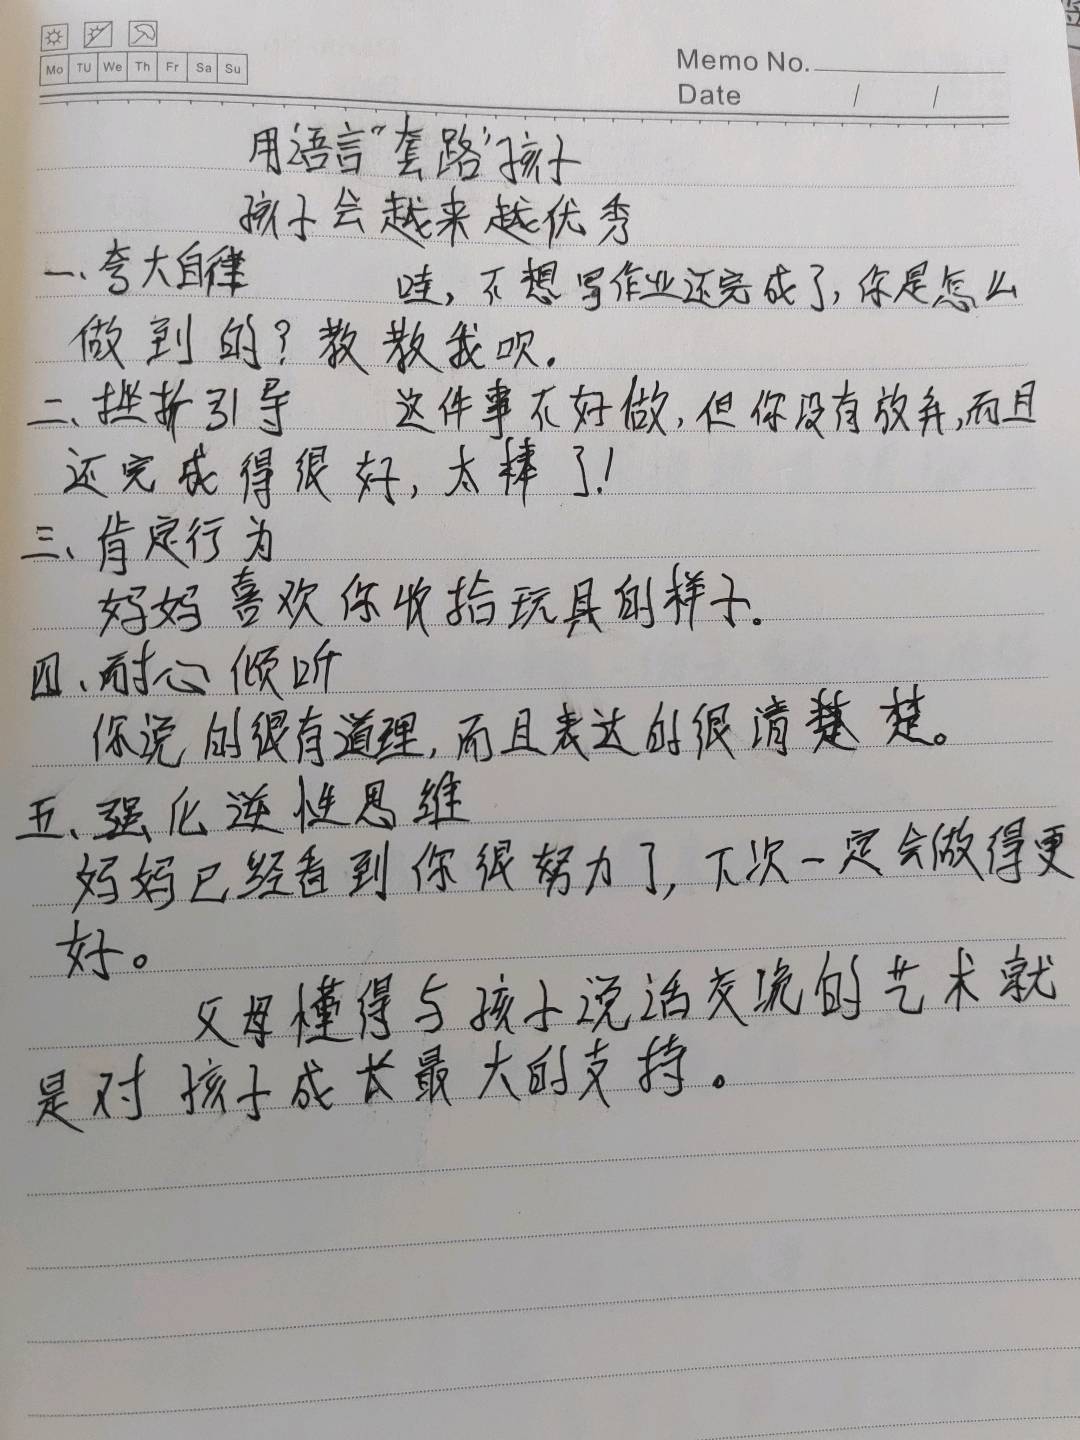 Mo TU We Th Fr Sa Su
Memo No.
Date / /
用语言"套路"孩子
孩子会越来越优秀
一、夸大自律 哇，不想写作业还完成了，你是怎么
做到的？教教我呗。
二、挫折引导 这件事不好做，但你没有放弃，而且
还完成得很好，太棒了！
三、肯定行为
妈妈喜欢你收拾玩具的样子。
四、耐心倾听
你说的很有道理，而且表达的很清楚楚。
五、强化逆性思维
妈妈已经看到你很努力了，下次一定会做得更
好。
父母懂得与孩子说话交流的艺术就
是对孩子成长最大的支持。